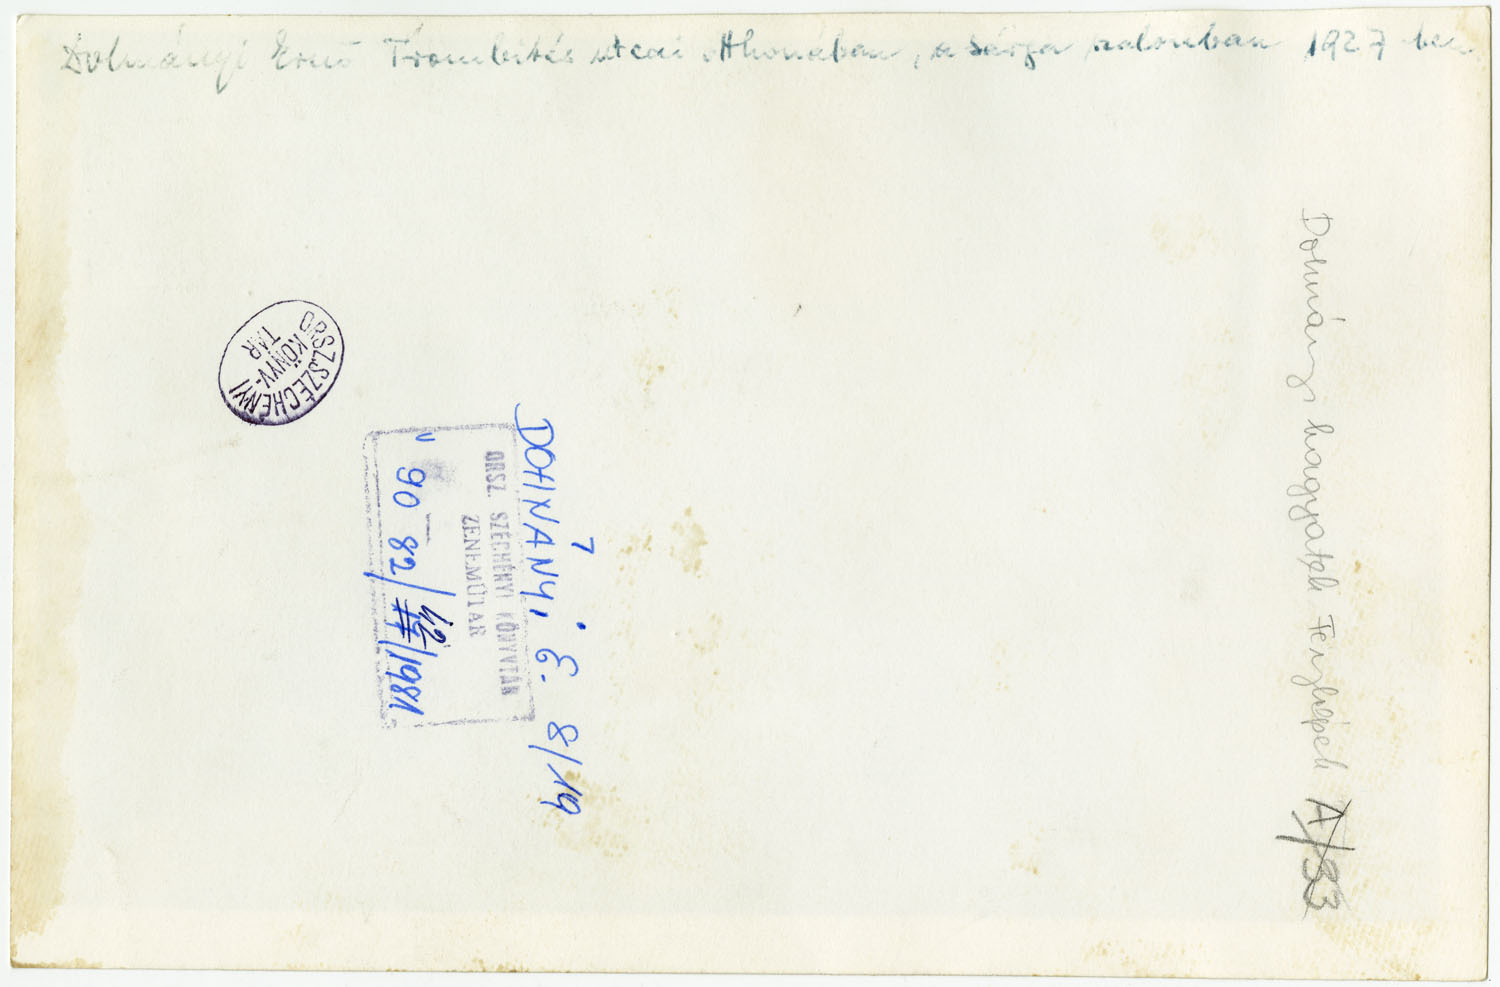 Dohnányi Ernő Trombitás utcai otthonában, a sárga szalonban 1927-ben.
ORSZ.SZÉCHÉNYI
KÖNYV-
TÁR
DOHNÁNYI, E. 8/19
ORSZ. SZÉCHÉNYI KÖNYVTÁR
ZENEMŰTÁR
90 82/42/1981
Dohnányi hagyaték Fényképek A/33